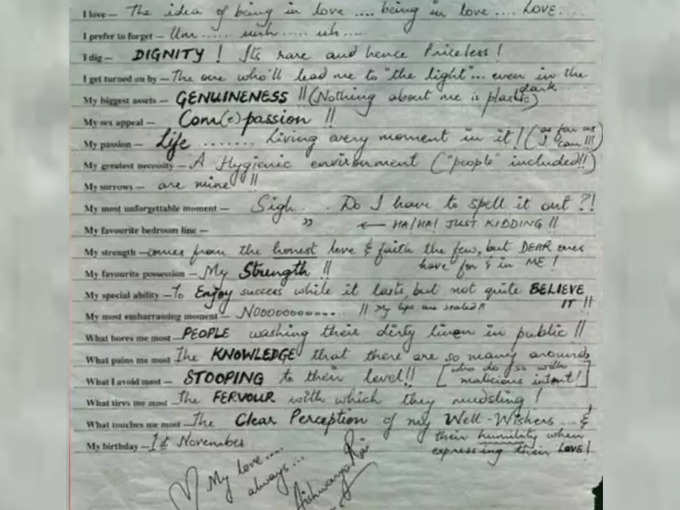 I love — The idea of being in love .... being in love .... LOVE...
I prefer to forget — Um ...... uuh ..... uh...
I dig — DIGNITY ! Its rare and hence Priceless !
I get turned on by — The one who'll lead me to "the light"... even in the dark
My biggest assets — GENUINENESS !! (Nothing about me is plastic)
My sex appeal — Com(e)passion !!
My passion — Life ....... Living every moment in it ! (as far as I can !!!)
My greatest necessity — A Hygienic environment ("people" included!!)
My sorrows — are mine !!
My most unforgettable moment — Sigh... . Do I have to spell it out ?!
My favourite bedroom line — " ← HA! HA! JUST KIDDING !!
My strength — comes from the honest love & faith the few, but DEAR ones have for & in ME !
My favourite possession — My Strength !!
My special ability — To Enjoy success while it lasts but not quite BELIEVE IT !!
My most embarrassing moment — Nooooooooo.... !! My lips are sealed
What bores me most — PEOPLE washing their dirty linen in public !!
What pains me most — The KNOWLEDGE that there are so many around, [who do so with malicious intent!]
What I avoid most — STOOPING to their level !!
What tires me most — The FERVOUR with which they
What touches me most — The Clear Perception of my Well-Wishers ... & their humility when expressing their LOVE !
My birthday — 1st November
My love.... always...
Aishwarya Rai